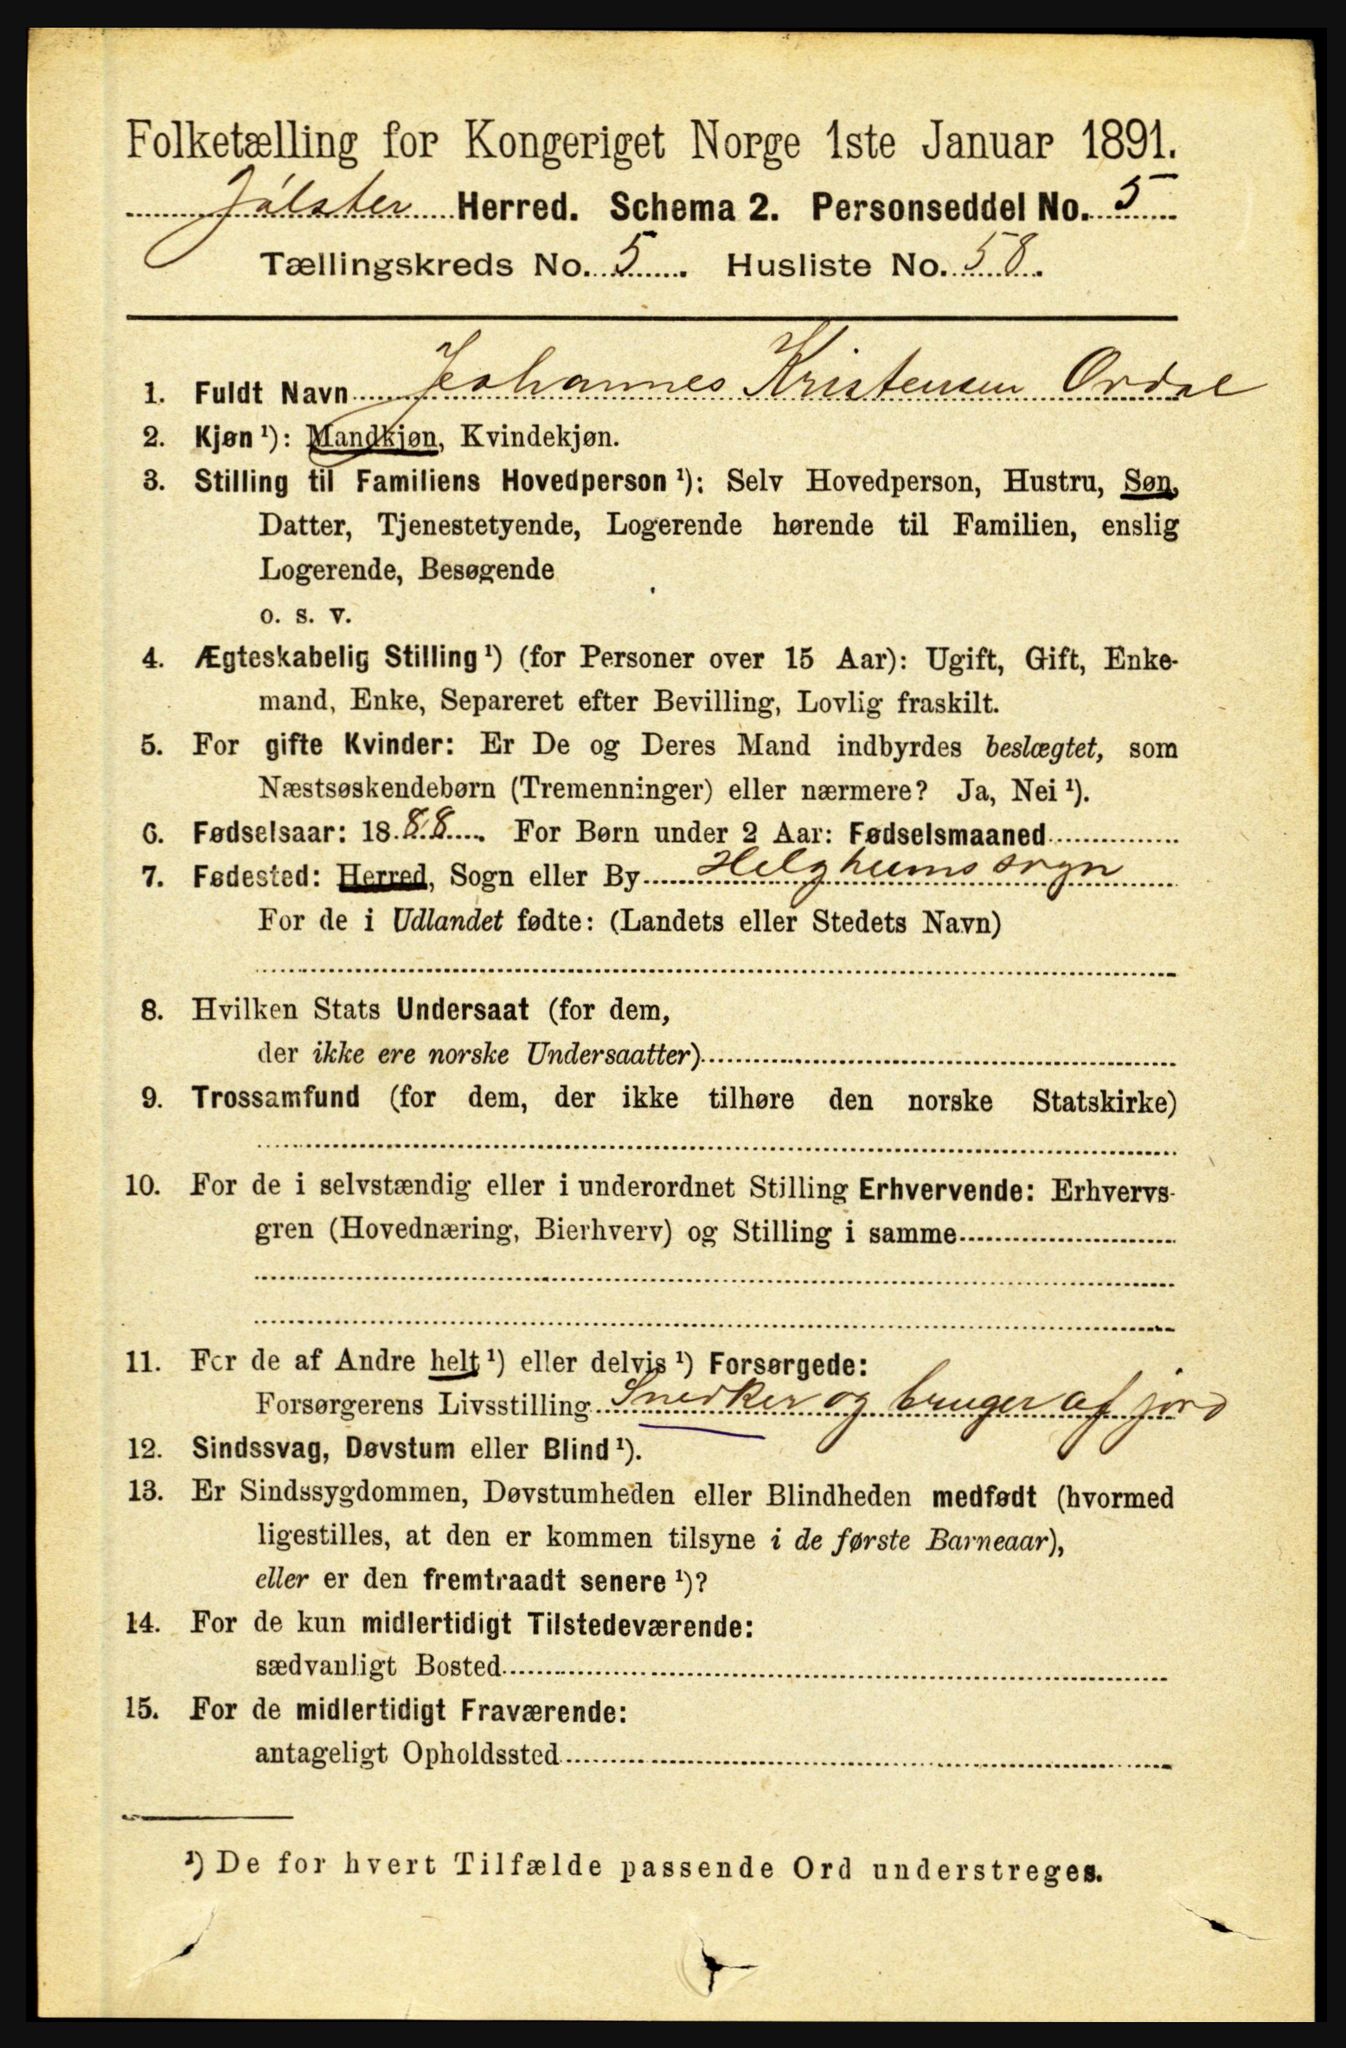 Folketælling for Kongeriget Norge 1ste Januar 1891.
Jølster Herred. Schema 2. Personseddel No. 5
Tællingskreds No. 5. Husliste No. 58.
1. Fuldt Navn Johannes Kristensen Ordal
2. Kjøn ¹): Mandkjøn, Kvindekjøn.
3. Stilling til Familiens Hovedperson ¹): Selv Hovedperson, Hustru, Søn,
Datter, Tjenestetyende, Logerende hørende til Familien, enslig
Logerende, Besøgende
o. s. v.
4. Ægteskabelig Stilling ¹) (for Personer over 15 Aar): Ugift, Gift, Enke-
mand, Enke, Separeret efter Bevilling, Lovlig fraskilt.
5. For gifte Kvinder: Er De og Deres Mand indbyrdes beslægtet, som
Næstsøskendebørn (Tremenninger) eller nærmere? Ja, Nei ¹).
6. Fødselsaar: 1888. For Børn under 2 Aar: Fødselsmaaned
7. Fødested: Herred, Sogn eller By Helghums sogn
For de i Udlandet fødte: (Landets eller Stedets Navn)
8. Hvilken Stats Undersaat (for dem,
der ikke ere norske Undersaatter)
9. Trossamfund (for dem, der ikke tilhøre den norske Statskirke)
10. For de i selvstændig eller i underordnet Stilling Erhvervende: Erhvervs-
gren (Hovednæring, Bierhverv) og Stilling i samme
11. For de af Andre helt ¹) eller delvis ¹) Forsørgede:
Forsørgerens Livsstilling Snedker og bruger af jord
12. Sindssvag, Døvstum eller Blind ¹).
13. Er Sindssygdommen, Døvstumheden eller Blindheden medfødt (hvormed
ligestilles, at den er kommen tilsyne i de første Barneaar),
eller er den fremtraadt senere ¹)?
14. For de kun midlertidigt Tilstedeværende:
sædvanligt Bosted
15. For de midlertidigt Fraværende:
antageligt Opholdssted
¹) De for hvert Tilfælde passende Ord understreges.